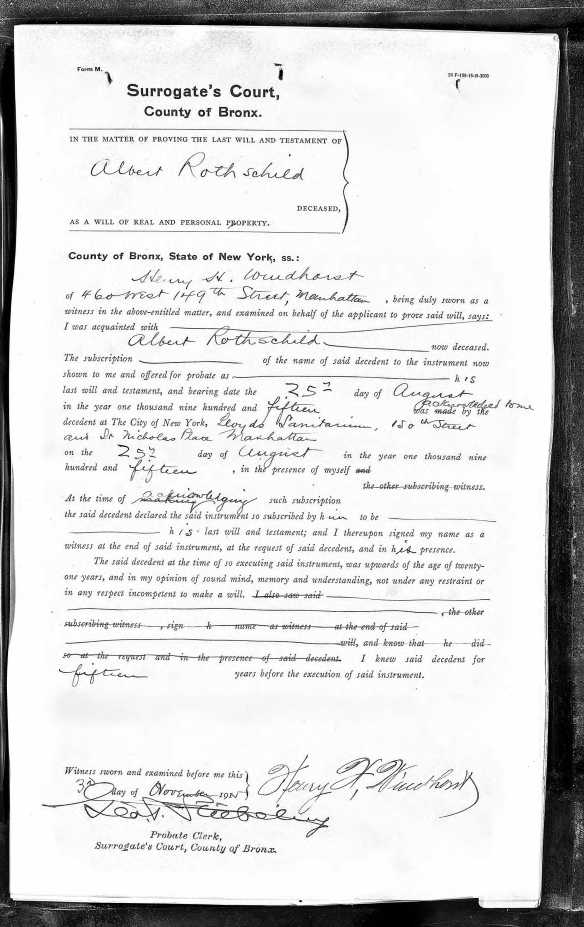 Form M.
Surrogate's Court,
County of Bronx.
IN THE MATTER OF PROVING THE LAST WILL AND TESTAMENT OF
Albert Rothschild
DECEASED,
AS A WILL OF REAL AND PERSONAL PROPERTY.
County of Bronx, State of New York, ss.:
Henry H. Windhorst
of 460 West 149th Street, Manhattan, being duly sworn as a
witness in the above-entitled matter, and examined on behalf of the applicant to prove said will, says:
I was acquainted with
Albert Rothschild now deceased.
The subscription of the name of said decedent to the instrument now
shown to me and offered for probate as his
last will and testament, and bearing date the 25th day of August
in the year one thousand nine hundred and fifteen was made by the acknowledged to me
decedent at The City of New York, Lloyds Sanitarium, 150th Street
and St Nicholas Place Manhattan
on the 25th day of August in the year one thousand nine
hundred and fifteen, in the presence of myself and
the other subscribing witness.
At the time of making acknowledging such subscription
the said decedent declared the said instrument so subscribed by him to be
his last will and testament; and I thereupon signed my name as a
witness at the end of said instrument, at the request of said decedent, and in his presence.
The said decedent at the time of so executing said instrument, was upwards of the age of twenty-
one years, and in my opinion of sound mind, memory and understanding, not under any restraint or
in any respect incompetent to make a will. I also saw said
, the other
subscribing witness , sign h name as witness at the end of said
will, and know that he did
so at the request and in the presence of said decedent. I knew said decedent for
fifteen years before the execution of said instrument.
Witness sworn and examined before me this
3d day of November 1915
Henry H. Windhorst
Probate Clerk,
Surrogate's Court, County of Bronx.